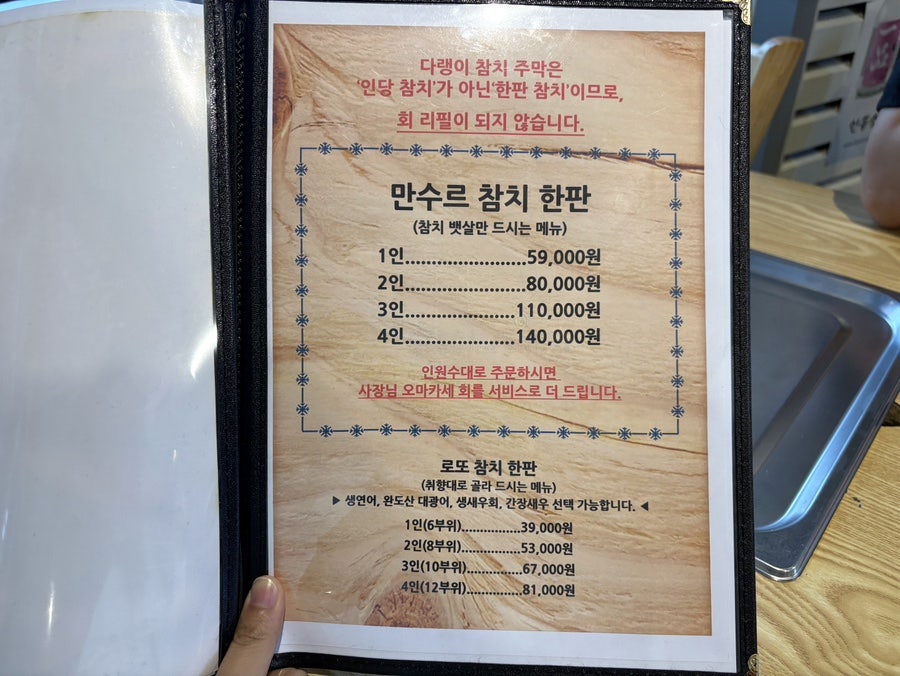 다랭이 참치 주막은
'인당 참치'가 아닌'한판 참치'이므로,
회 리필이 되지 않습니다.
만수르 참치 한판
(참치 뱃살만 드시는 메뉴)
1인.......................59,000원
2인.......................80,000원
3인.....................110,000원
4인.....................140,000원
인원수대로 주문하시면
사장님 오마카세 회를 서비스로 더 드립니다.
로또 참치 한판
(취향대로 골라 드시는 메뉴)
▶ 생연어, 완도산 대광어, 생새우회, 간장새우 선택 가능합니다. ◀
1인(6부위)...............39,000원
2인(8부위)..............53,000원
3인(10부위)..............67,000원
4인(12부위)..............81,000원